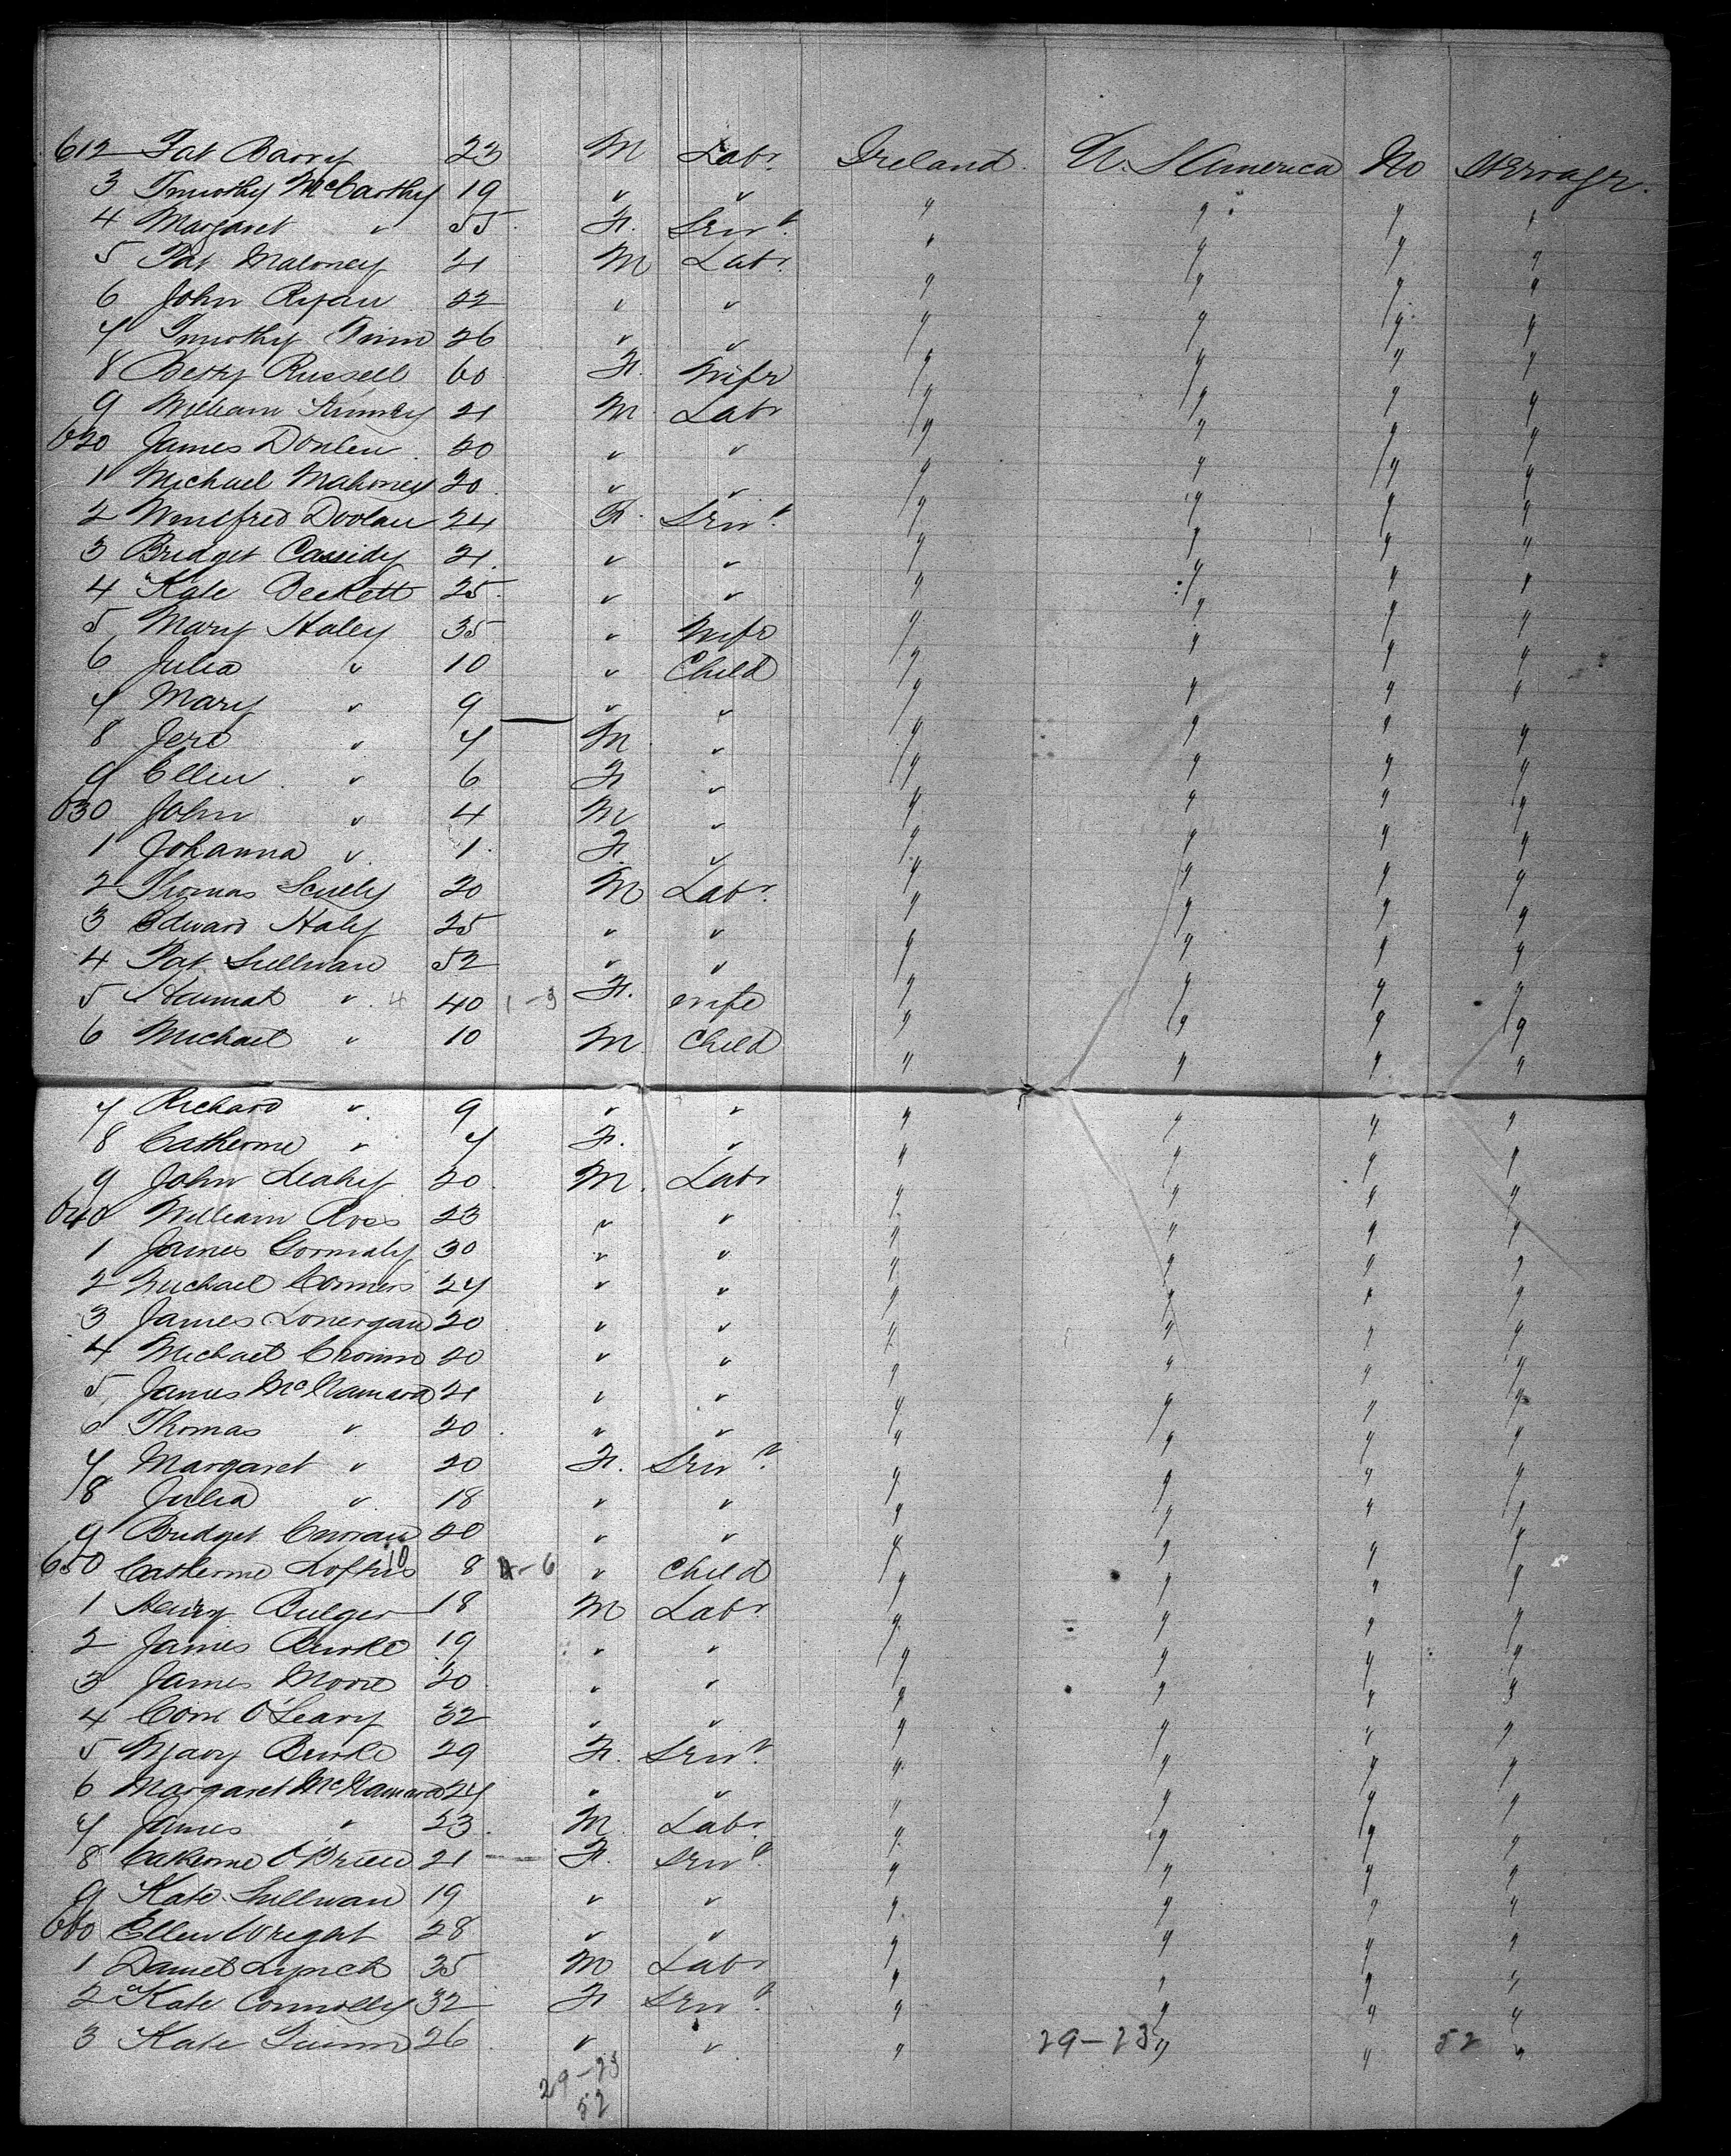 612 Pat Barry 23 M Labr Ireland U. S America No Steerage
3 Timothy McCarthy 19 " " " " " "
4 Margaret " 55 F. Servt. " " " "
5 Pat Maloney 21 M Labr " " " "
6 John Ryan 22 " " " " " "
7 Timothy Finn 26 " " " " " "
8 Betty Russell 60 F. Wife " " " "
9 William 21 M Labr " " " "
620 James Donlen 20 " " " " " "
1 Michael Mahoney 20 " " " " " "
2 Winifred Doolan 24 F. Servt. " " " "
3 Bridget Cassidy 21. " " " " " "
4 Kate Beckett 25 " " " " " "
5 Mary Haley 35 " Wife " " " "
6 Julia " 10 " Child " " " "
7 Mary " 9 " " " " " "
8 Jere " 7 M " " " " "
9 Ellen " 6 F " " " " "
630 John " 4 M " " " " "
1 Johanna " 1 F. " " " " "
2 Thomas Scully 20 M Labr. " " " "
3 Edward Haly 25 " " " " " "
4 Pat Sullivan 52 " " " " " "
5 Hannah " 4 40 1-3 F. wife " " " "
6 Michael " 10 M. Child " " " "
7 Richard " 9 " " " " " "
8 Catherine " 7 F. " " " " "
9 John Leahy 20 M. Labr " " " "
640 William Ross 23 " " " " " "
1 James Gormaly 30 " " " " " "
2 Michael Connors 27 " " " " " "
3 James Lonergan 20 " " " " " "
4 Michael Cronin 20 " " " " " "
5 James McNamara 21 " " " " " "
6 Thomas " 20 " " " " " "
7 Margaret " 20 F. Servt. " " " "
8 Julia " 18 " " " " " "
9 Bridget Curran 20 " " " " " "
650 Catherine Loftus 10 8 4-6 " Child " " " "
1 Henry Bulger 18 M Labr. " " " "
2 James Burke 19 " " " " " "
3 James Moore 20 " " " " " "
4 Corn O'Leary 32 " " " " " "
5 Mary Burke 29 F. Servt. " " " "
6 Margaret McNamara 27 " " " " " "
7 James " 23 M Labr. " " " "
8 Catherine O'Brien 21 F. Servt. " " " "
9 Kate Sullivan 19 " " " " " "
660 Ellen Wright 28 " " " " " "
1 Daniel Lynch 35 M Labr " " " "
2 Kate Connolly 32 F Servt. " " " "
3 Kate Quinn 26 " " " 29-23 " " 52 "
29-23
52